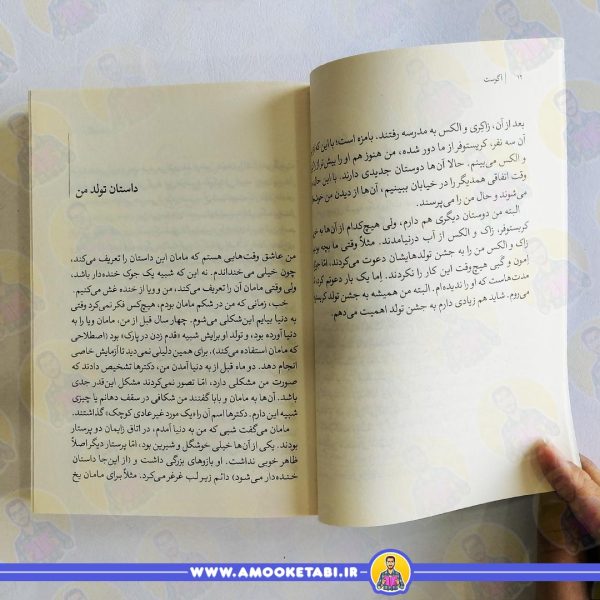 ۱۲ | اگوست
بعد از آن، زاکری و الکس به مدرسه رفتند. بامزه است؛ با این که از
آن سه نفر، کریستوفر از ما دور شده، من هنوز هم او را بیش‌تر از
و الکس می‌بینم. حالا آن‌ها دوستان جدیدی دارند. با این حال
وقت اتفاقی همدیگر را در خیابان ببینیم، آن‌ها از دیدن من خوش
می‌شوند و حال من را می‌پرسند.
البته من دوستان دیگری هم دارم، ولی هیچ‌کدام از آن‌ها به
کریستوفر، زاک و الکس از آب درنیامدند. مثلاً وقتی ما بچه
زاک و الکس من را به جشن تولدهایشان دعوت می‌کردند، امّا
اِمون و گَبی هیچ‌وقت این کار را نکردند. اِما یک بار دعوتم کرد
مدت‌هاست که او را ندیده‌ام. البته من همیشه به جشن تولد کریستو
می‌روم. شاید هم زیادی دارم به جشن تولد اهمیت می‌دهم.
داستان تولد من
من عاشق وقت‌هایی هستم که مامان این داستان را تعریف می‌کند،
چون خیلی می‌خنداندم. نه این که شبیه یک جوک خنده‌دار باشد،
ولی وقتی مامان آن را تعریف می‌کند، من و ویا از خنده غش می‌کنیم.
خب، زمانی که من در شکم مامان بودم، هیچ‌کس فکر نمی‌کرد وقتی
به دنیا بیایم این‌شکلی می‌شوم. چهار سال قبل از من، مامان ویا را به
دنیا آورده بود، و تولد او برایش شبیه «قدم زدن در پارک» بود (اصطلاحی
که مامان استفاده می‌کند). برای همین دلیلی نمی‌دید تا آزمایش خاصی
انجام دهد. دو ماه قبل از به دنیا آمدن من، دکترها تشخیص دادند که
صورت من مشکلی دارد، امّا تصور نمی‌کردند مشکل این‌قدر جدی
باشد. آن‌ها به مامان و بابا گفتند من شکافی در سقف دهانم یا چیزی
شبیه این دارم. دکترها اسم آن را «یک مورد غیرعادی کوچک» گذاشتند.
مامان می‌گفت شبی که من به دنیا آمدم، در اتاق زایمان دو پرستار
بودند. یکی از آن‌ها خیلی خوشگل و شیرین بود، امّا پرستار دیگر اصلاً
ظاهر خوبی نداشت. او بازوهای بزرگی داشت و (از این‌جا داستان
خنده‌دار می‌شود) دائم زیر لب غرغر می‌کرد. مثلاً برای مامان یخ
WWW.AMOOKETABI.IR